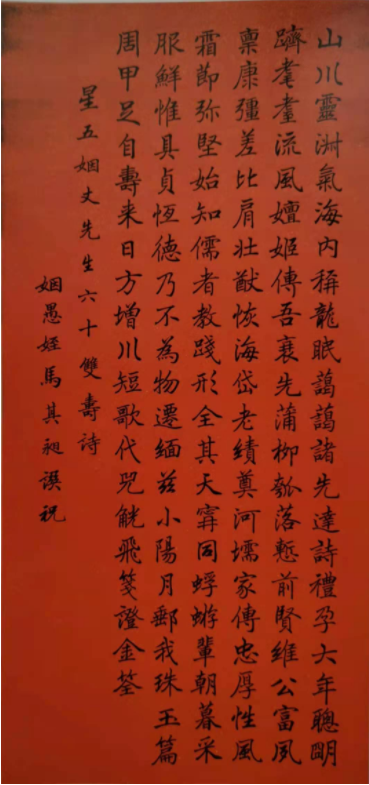 山川靈淑氣海內稱龍眠藹藹諸先達詩禮孕大年聰明
躋耄耋流風嬗姬傳吾衰先蒲柳瓠落慙前賢維公富夙
稟康彊差比肩壯猷恢海岱老績奠河壖家傳忠厚性風
霜節弥堅始知儒者教踐形全其天甯同蜉蝣輩朝暮采
服鮮惟具貞恆德乃不為物遷緬茲小陽月郵我珠玉篇
周甲足自壽来日方增川短歌代兕觥飛箋證金荃
星五姻丈先生六十雙壽詩
姻愚姪馬其昶譔祝